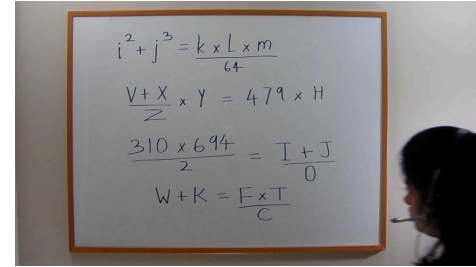 i² + j³ = k x L x m / 64
V + X / Z x Y = 479 x H
310 x 694 / 2 = I + J / O
W + K = F x T / C